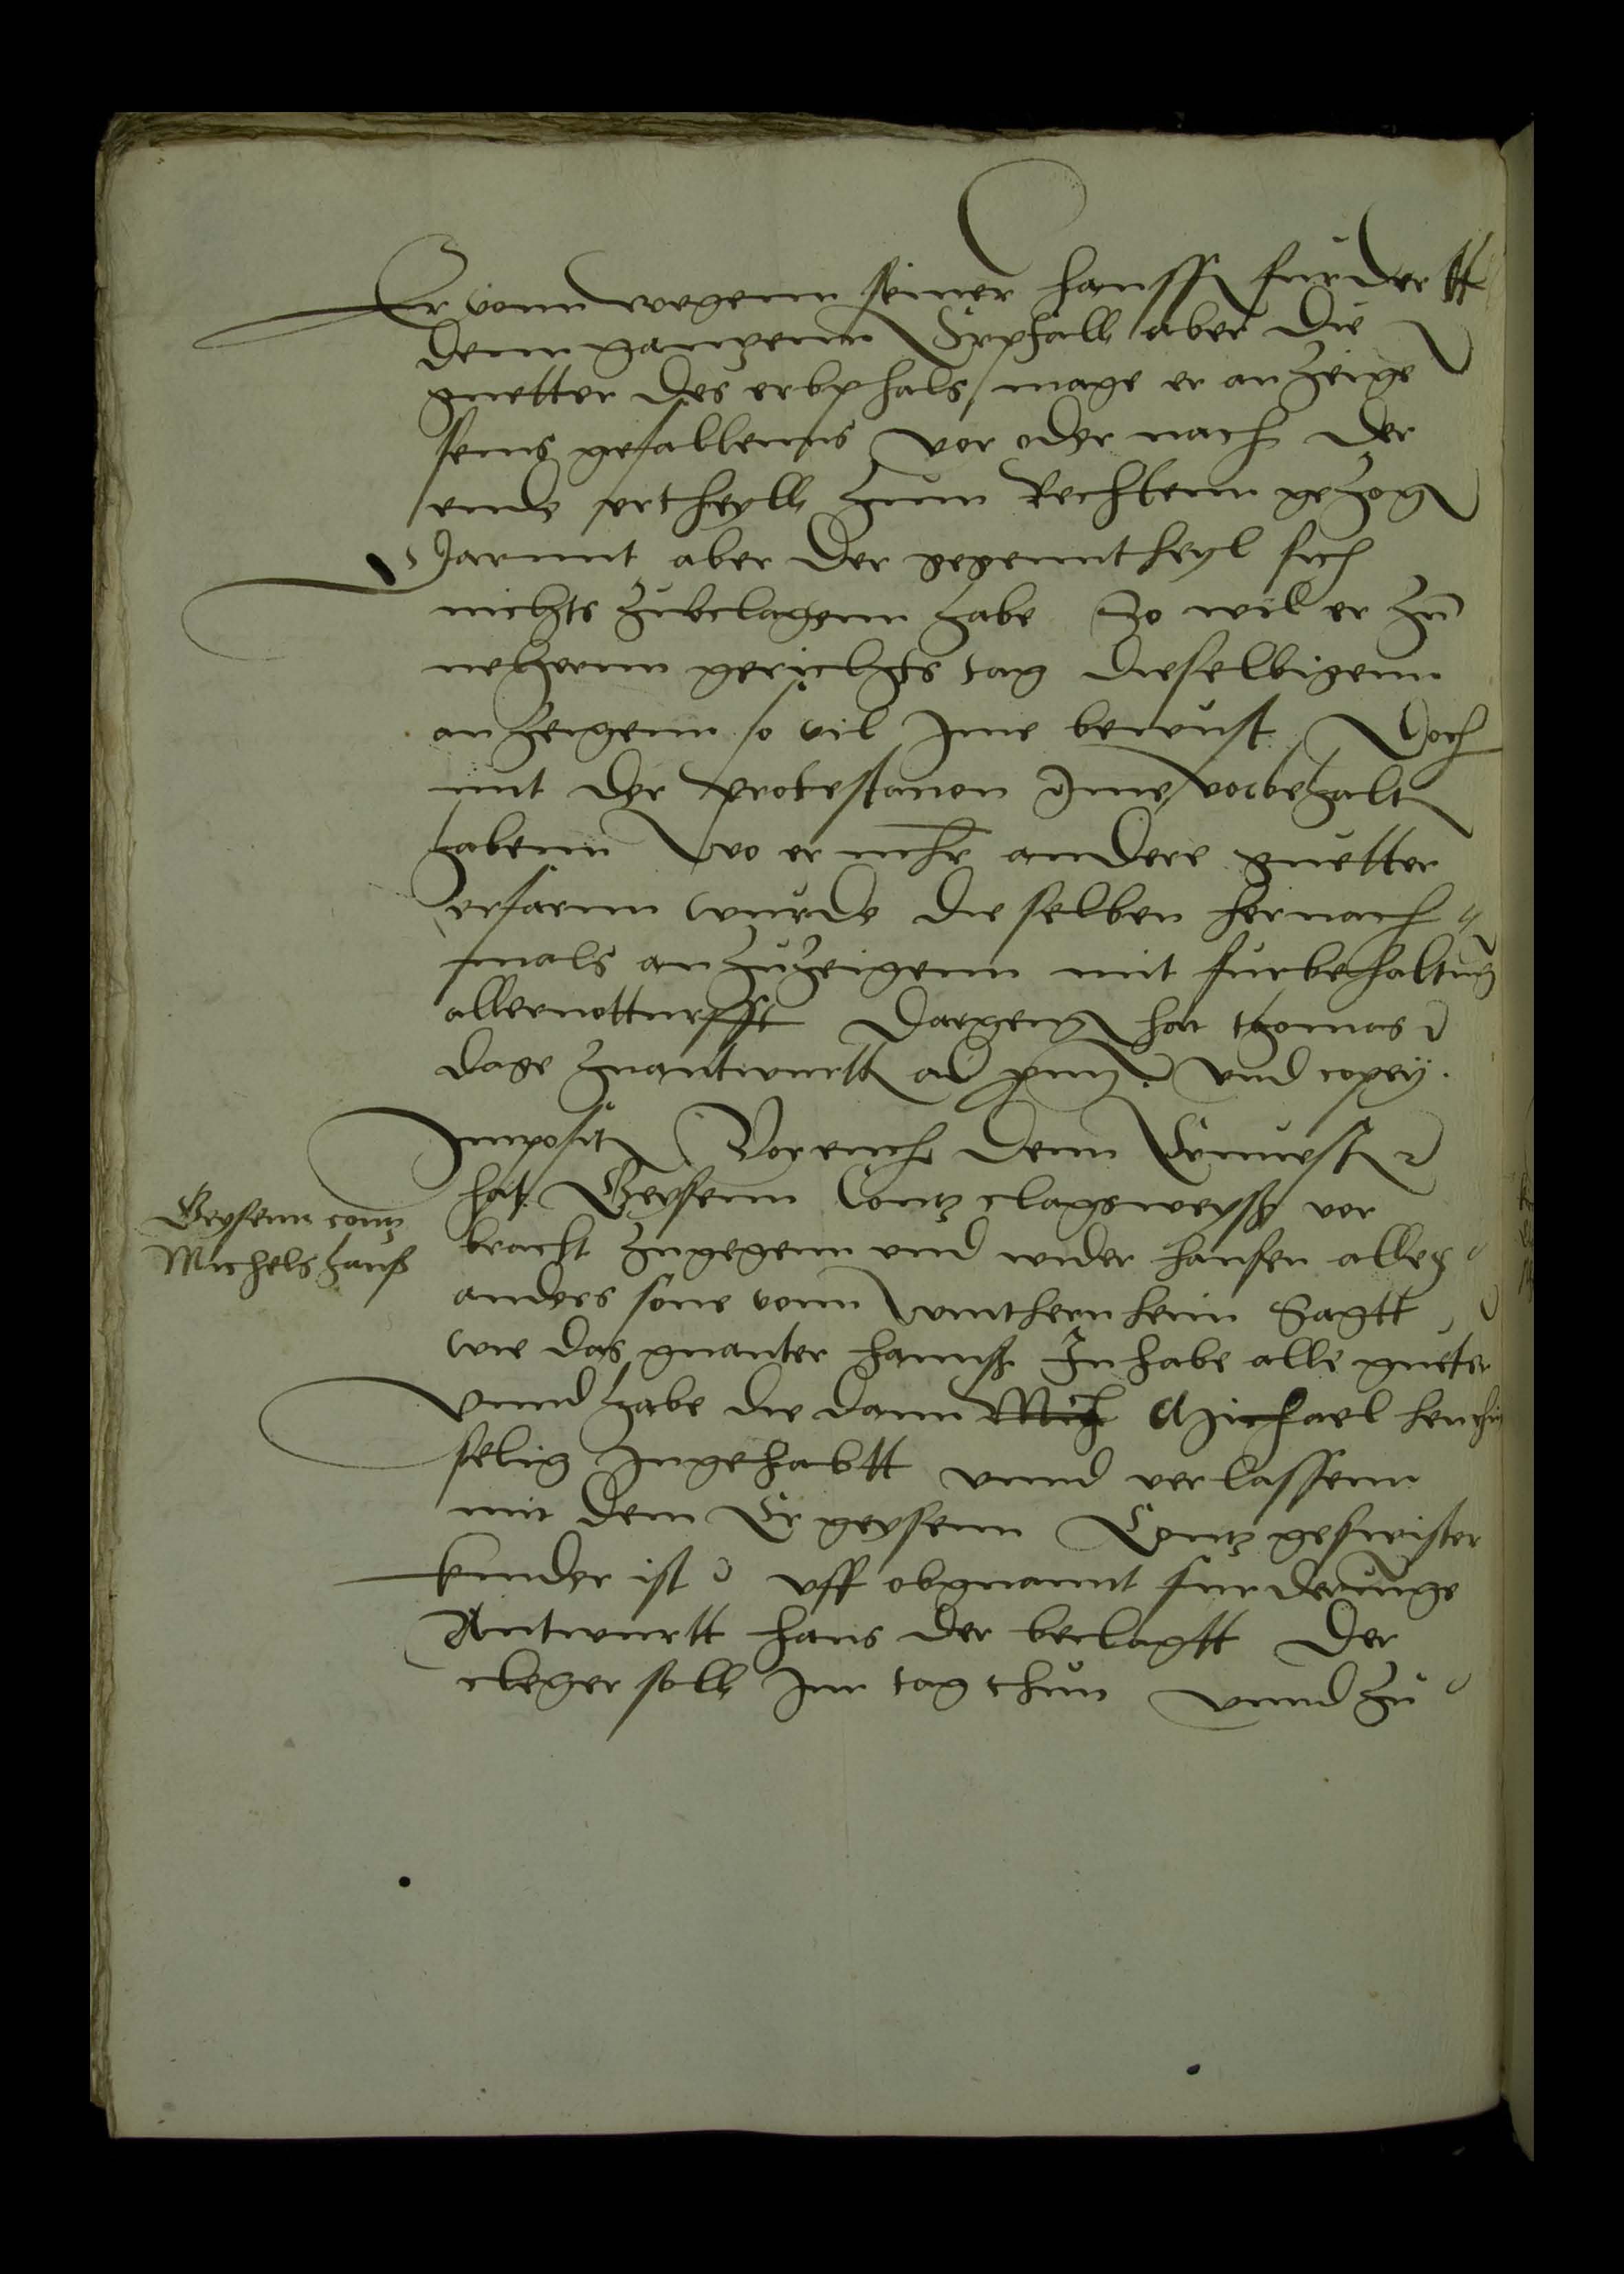 Er vonn wegenn seiner hausfr furdertt
denn gantzenn Erpfall aber die
guetter des erbphals mage er anzeige
seins gefallenns vor oder nach der
ende vrtheyll zum Rechtenn gezog
Darmit aber der gegenntheyl sich
nichts zubclagenn habe So wil er zu
nehenn gerichts tag dieselbigenn
anzeigenn so vil Ime bewust Doch
mit der protestacion Ime vorbehalt
habenn Wo er mehr andere guetter
erfarnn wurde die selben hernach
mals anzuzeigenn mit furbehaltung
aller notturfft Dargegen hat thomas
dage zu antwurtt ad prim. vnd copey.
Imposit Vor euch dem Ernuest
hat Geysenn Contz clagsweysß vor
bracht zugegenn vnd wider hansen allex
anders sone vonn vnthernheim Sagtt
wie das gnanter hannß Inhabe alle gueter
vnnd habe die dann Mich Michael henchin
selig Ingehabtt vnnd verlassenn
mit dem Er geysenn Contz geswister
kinder ist vff obgnannt furderunge
Antwurtt hans der beclagtt Der
cleger soll Inn tag thun vnnd zu
Geysenn contz
Michels hanß